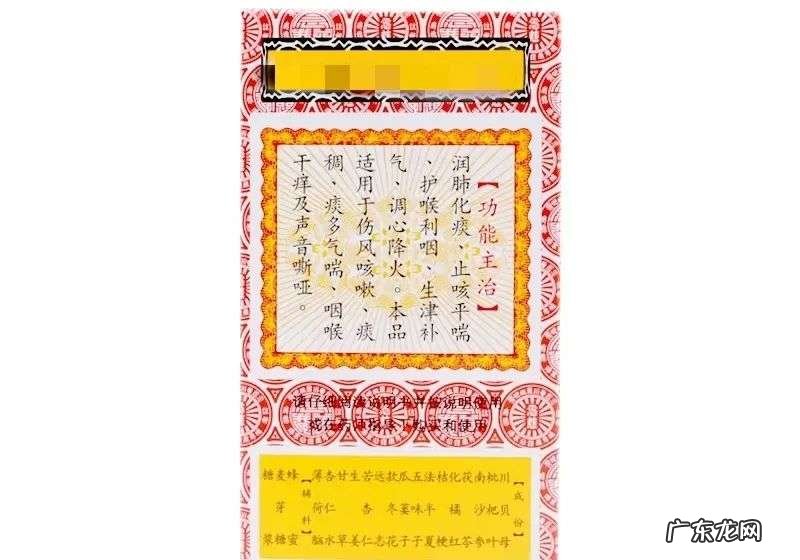 【功能主治】
润肺化痰、止咳平喘
、护喉利咽、生津补
气、调心降火。本品
适用于伤风咳嗽、痰
稠、痰多气喘、咽喉
干痒及声音嘶哑。
请仔细阅读说明书并按说明使用
或在药师指导下购买和使用
【成份】
川贝母
枇杷叶
南沙参
茯苓
化橘红
桔梗
法半夏
五味子
瓜蒌子
款冬花
远志
苦杏仁
生姜
甘草
杏仁水
薄荷脑
【辅料】
蜂蜜
麦芽糖
糖浆
广东龙网